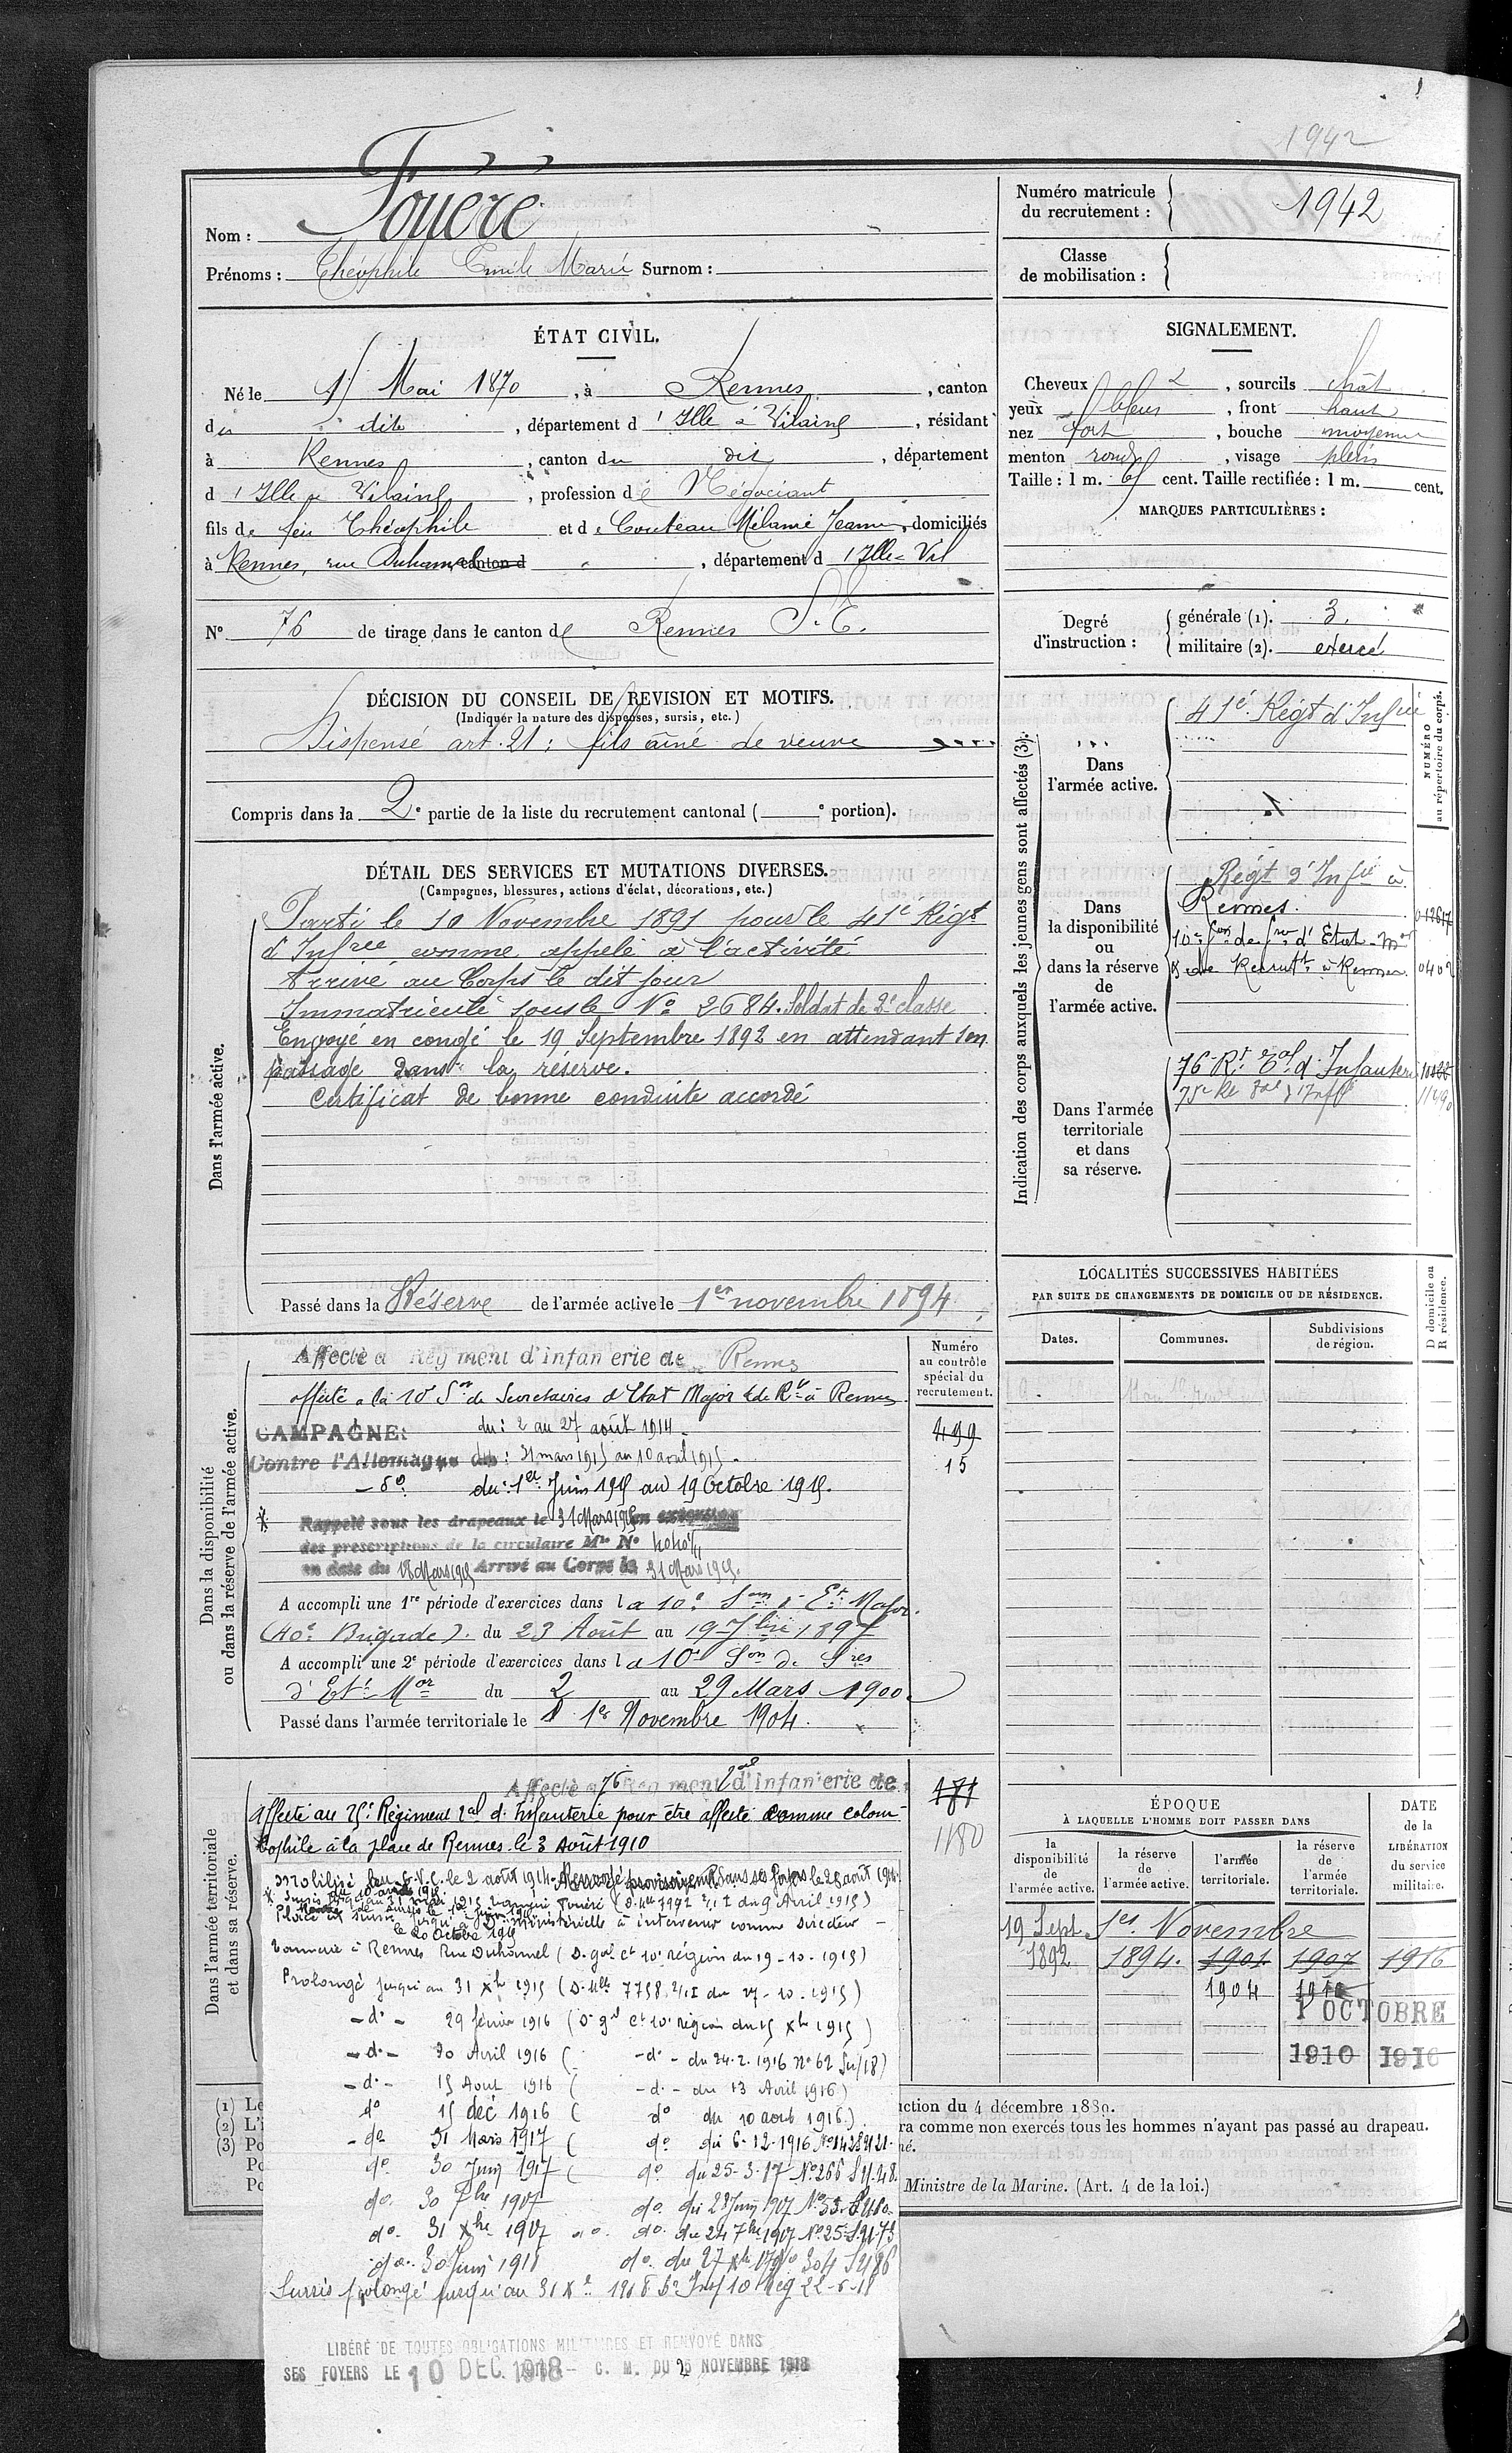 1942
Nom : Fouéré
Prénoms : Théophile Emile Marie Surnom :
Numéro matricule du recrutement : 1942
Classe de mobilisation :
ÉTAT CIVIL.
Né le Mai 1870, à Rennes, canton
du dit, département d'Ille & Vilaine, résidant
à Rennes, canton du dit, département
d'Ille & Vilaine, profession de Négociant
fils de feu Théophile et de Couteau Mélanie Jeanne, domiciliés
à Rennes, rue Duhamel canton d , département d'Ille & Vil
N° 76 de tirage dans le canton de Rennes S. E.
SIGNALEMENT.
Cheveux , sourcils chât
yeux bleus, front haut
nez fort, bouche moyenne
menton rond, visage plein
Taille : 1 m. cent. Taille rectifiée : 1 m. cent.
MARQUES PARTICULIÈRES :
Degré d'instruction : générale (1). 3.
militaire (2). exercé
DÉCISION DU CONSEIL DE REVISION ET MOTIFS.
(Indiquer la nature des dispenses, sursis, etc.)
Dispensé art. 21 : fils aîné de veuve
Compris dans la 2e partie de la liste du recrutement cantonal ( e portion).
DÉTAIL DES SERVICES ET MUTATIONS DIVERSES.
(Campagnes, blessures, actions d'éclat, décorations, etc.)
Dans l'armée active.
Parti le 10 Novembre 1891 pour le 41e Régt
d'Infrie comme appelé à l'activité
Arrivé au Corps le dit jour
Immatriculé sous le No 2684. Soldat de 2e classe
Envoyé en congé le 19 Septembre 1892 en attendant son
passage dans la réserve.
Certificat de bonne conduite accordé
Passé dans la Réserve de l'armée active le 1er novembre 1894
Indication des corps auxquels les jeunes gens sont affectés (3).
NUMÉRO au répertoire du corps.
Dans l'armée active.
41e Régt d'Infrie
Dans la disponibilité ou dans la réserve de l'armée active.
Régt d'Infie à
Rennes.
10e Son de Sres d'Etat-Mor
& de Recrutt à Rennes. 0402
Dans l'armée territoriale et dans sa réserve.
76e Rt Tal d'Infanterie
75e Rt Tal d'Inf
LOCALITÉS SUCCESSIVES HABITÉES
PAR SUITE DE CHANGEMENTS DE DOMICILE OU DE RÉSIDENCE.
Dates. Communes. Subdivisions de région. D domicile ou R résidence.
Dans la disponibilité ou dans la réserve de l'armée active.
Numéro au contrôle spécial du recrutement.
Affecté a Régiment d'infanterie de Rennes
affecté à la 10e Son de Secrétaires d'Etat Major & de Rt à Rennes
499
15
CAMPAGNE: du : 2 au 27 août 1914.
Contre l'Allemagne du : 31 mars 1915 au 10 avril 1915.
- do du : 1er Juin 1915 au 19 Octobre 1915.
Rappelé sous les drapeaux le 31 Mars 1915 en exécution
des prescriptions de la circulaire Mlle No
en date du 18 Mars 1915 Arrivé au Corps le 31 Mars 1915.
A accompli une 1re période d'exercices dans la 10e Son d'Et Major
(40e Brigade). du 23 Août au 19 7bre 1897
A accompli une 2e période d'exercices dans la 10e Son de Sres
d'Et Mor du 2 au 29 Mars 1900
Passé dans l'armée territoriale le 1er Novembre 1904.
Dans l'armée territoriale et dans sa réserve.
Affecté au 76 Régiment Tal d'infanterie de
181
1180
Affecté au 75e Régiment Tal d'Infanterie pour être affecté comme colom-
bophile à la place de Rennes le 3 Août 1910
mobilisé au G.V.C. le 2 août 1914. Renvoyé provisoirement dans ses foyers le 28 août 1914.
le 20 Octobre 1915
Tannerie à Rennes Rue Duhamel (D. gal Ct 10e région du 19-10-1915)
Prolongé jusqu'au 31 Xbre 1915 (D. Mlle 7758 2/1 I du 27-10-1915)
- do - 29 février 1916 (Don gal Ct 10e région du 15 Xbre 1915)
- do - 30 Avril 1916 ( - do - du 24.2.1916 No 62 Su/18)
- do - 15 Aout 1916 ( - do - du 13 Avril 1916)
do 15 déc 1916 ( do du 10 aout 1916)
- do 31 Mars 1917 ( do du 6-12-1916
do 30 Juin 1917 ( do du 25-3-17 No 266
do 30 7bre 1917 do du 28 Juin 1917
do 31 Xbre 1917 do du 24 7bre 1917
do 30 Juin 1918 do du 27 Xbre
Sursis prolongé jusqu'au 31 Xbre 1918 22-6-18
LIBÉRÉ DE TOUTES OBLIGATIONS MILITAIRES ET RENVOYÉ DANS
SES FOYERS LE 10 DEC. 1918 - C. M. DU NOVEMBRE 1918
ÉPOQUE À LAQUELLE L'HOMME DOIT PASSER DANS
la disponibilité de l'armée active. la réserve de l'armée active. l'armée territoriale. la réserve de l'armée territoriale.
DATE de la LIBÉRATION du service militaire.
19 Sept 1er Novembre
1892 1894. 1901 1907 1916
1904 1910
1 OCTOBRE
1910 1916
(1) Le
(2) L'i
(3) Po
Po
Po
uction du 4 décembre 1889.
ra comme non exercés tous les hommes n'ayant pas passé au drapeau.
né.
Ministre de la Marine. (Art. 4 de la loi.)